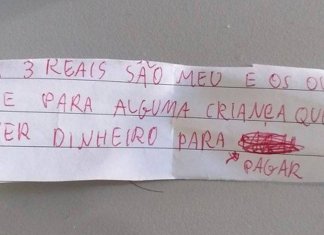 3 REAIS SÃO MEU E OS
E PARA ALGUMA CRIANÇA
DINHEIRO PARA
PAGAR